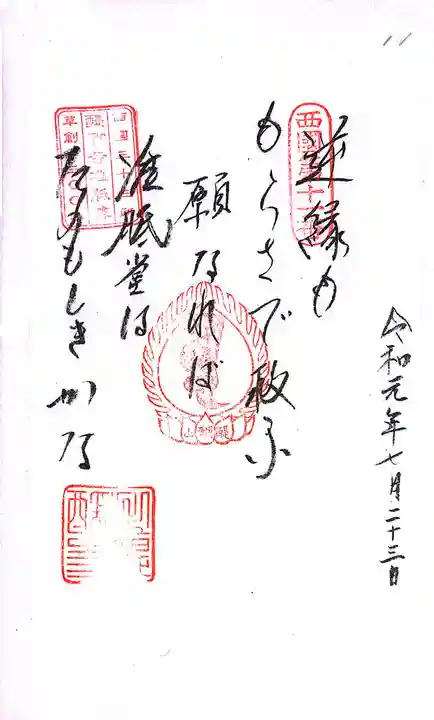 11
西國第十一番
逆縁も
もらさで救ふ
願なれば
准胝堂は
たのもしきかな
令和元年七月二十三日
草創
醍醐山